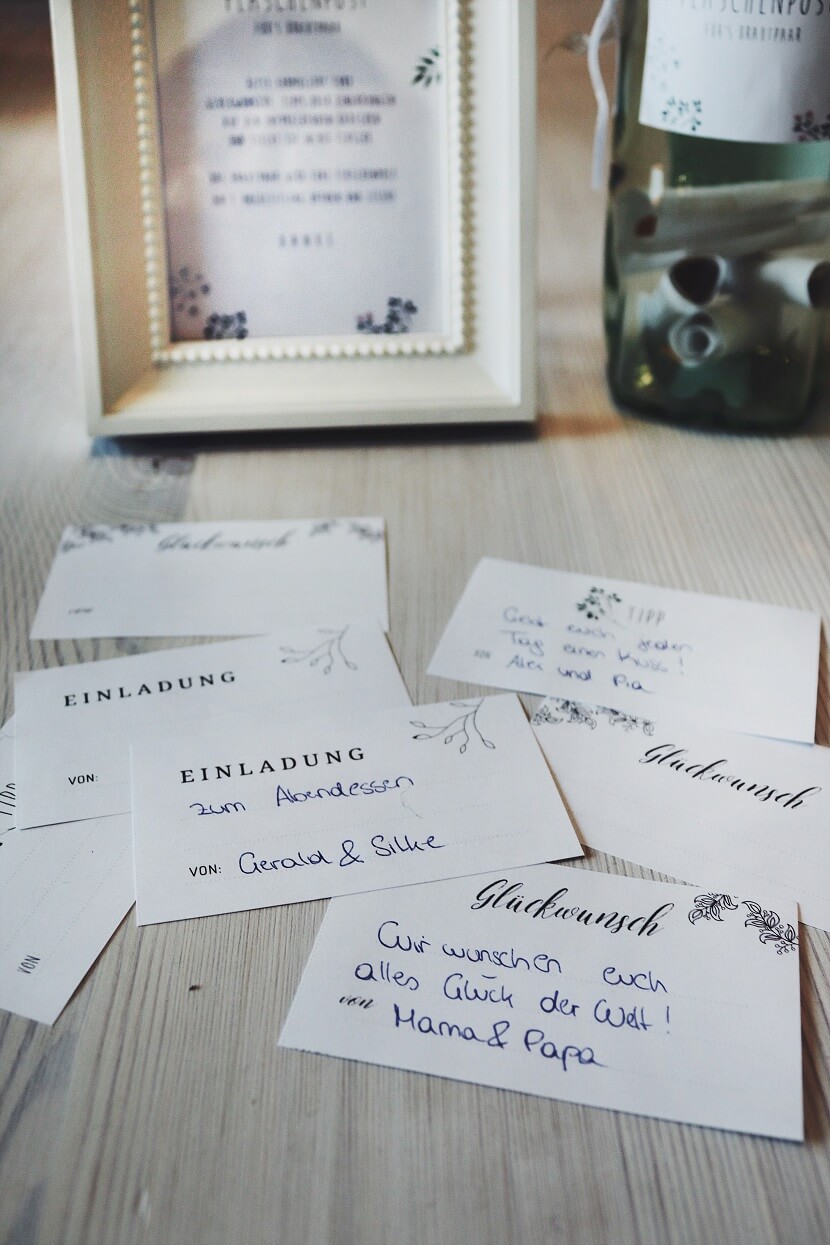 FLASCHENPOST
FÜR'S BRAUTPAAR
FLASCHENPOST
FÜR'S BRAUTPAAR
DANKE
Glückwunsch
VON
TIPP
Gebt euch jeden
Tag einen Kuss!
VON Alex und Pia
EINLADUNG
VON:
EINLADUNG
zum Abendessen
VON: Gerald & Silke
Glückwunsch
TIPP
VON
Glückwunsch
Wir wünschen euch
alles Glück der Welt!
von Mama & Papa